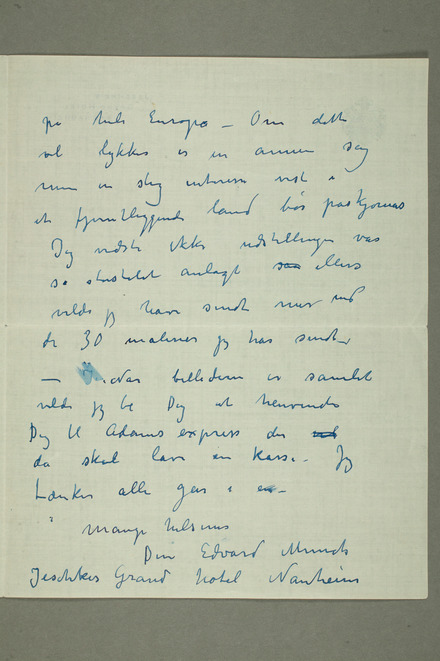 på hele Europa – Om dette
vil lykkes er en annen sag
men en slig interesse vist i
et fjerntliggende land bør paaskjønnes
Jeg vidste ikke udstillingen var
så storstilet anlagt saa ellers
vilde jeg have sendt mer end
de 30 malerier jeg har sendt –
– Når billederne er samlet
vilde jeg be Dig at henvende
Dig til Adams express der
da skal lave en kasse. Jeg
tænker alle går i en –
mange hilsener
Din Edvard Munch
Jeschkes Grand hotel Nauheim